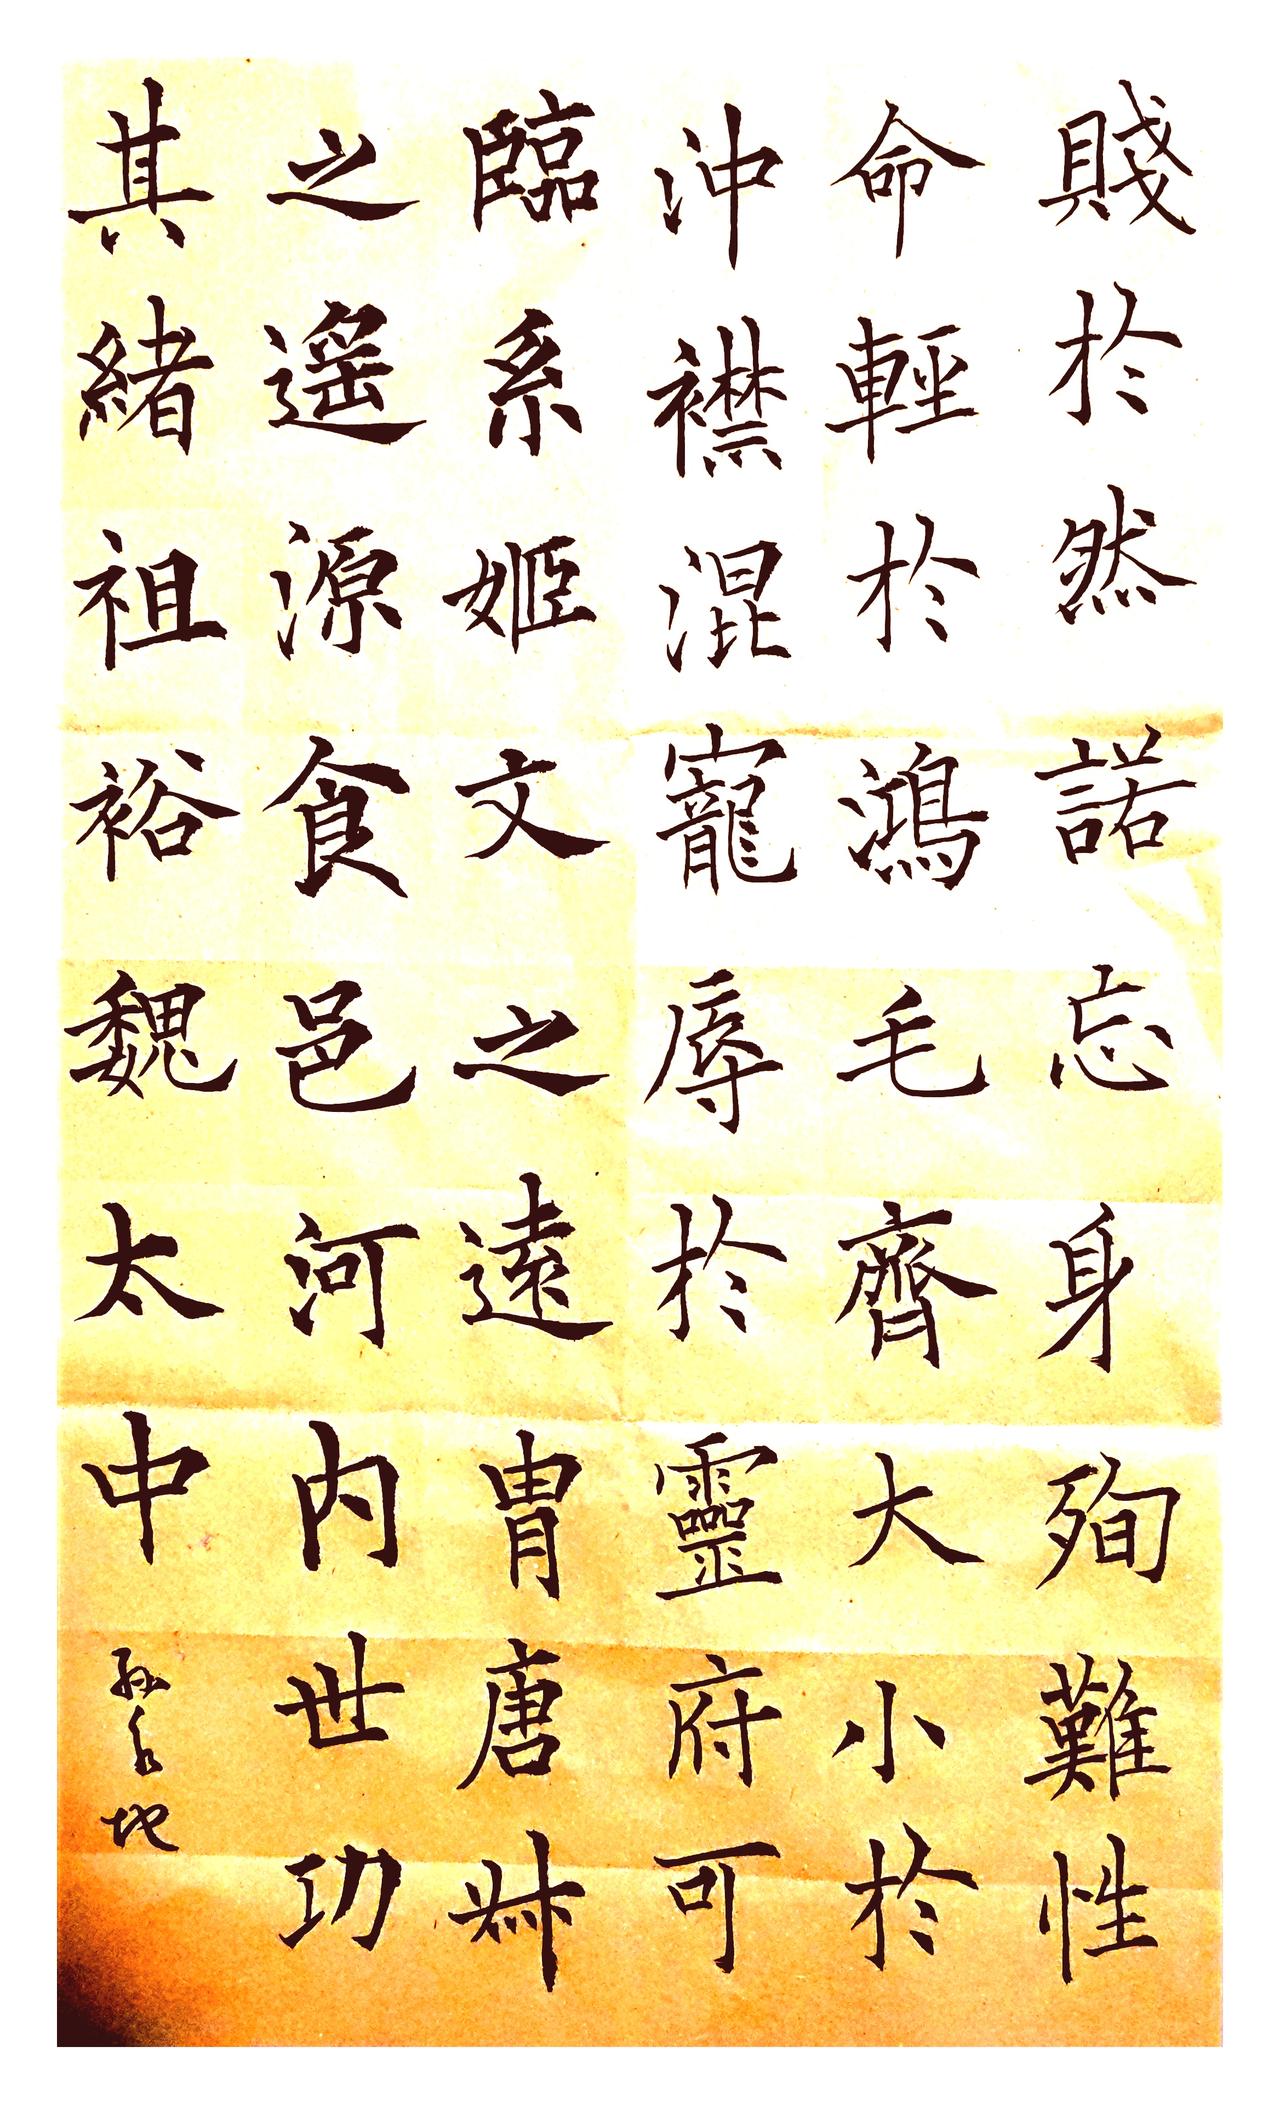 賤於然諾忘身殉難性
命輕於鴻毛齊大小於
沖襟混寵辱於靈府可
臨系姬文之遠胄唐叔
之遥源食邑河內世功
其緒祖裕魏太中